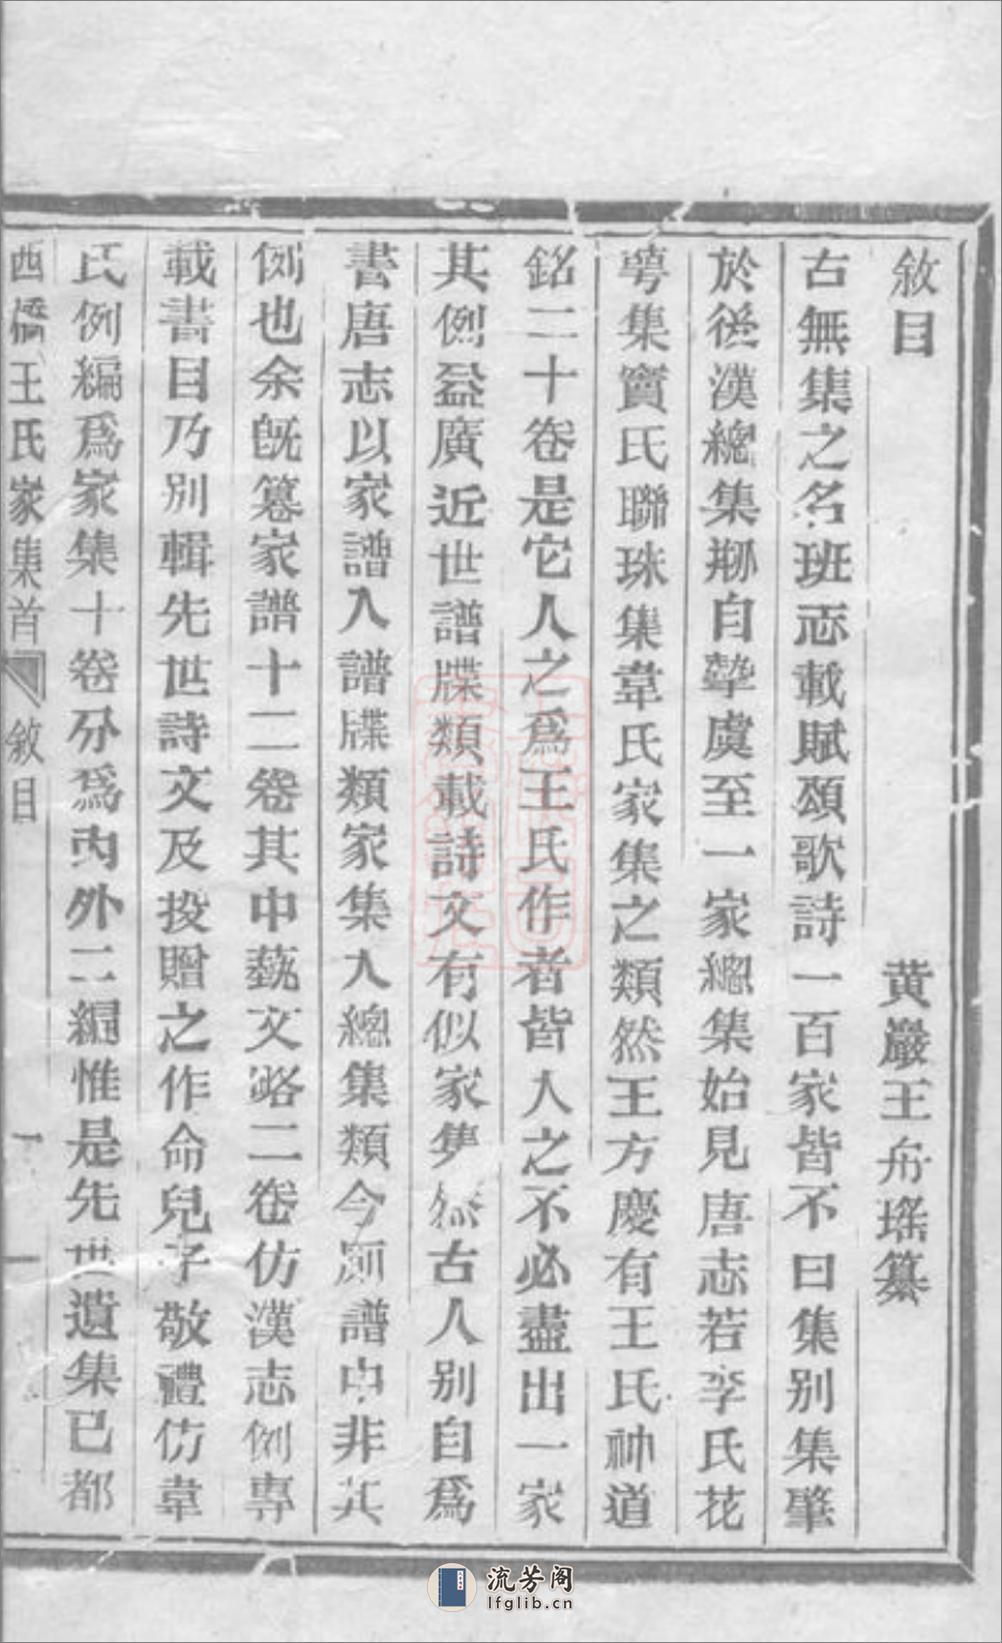 敘目
黃巖王舟瑤纂
古無集之名班志載賦頌歌詩一百家皆不曰集別集肇
於後漢總集昉自摯虞至一家總集始見唐志若李氏花
萼集竇氏聯珠集韋氏家集之類然王方慶有王氏神道
銘二十卷是它人之爲王氏作者皆入之不必盡出一家
其例益廣近世譜牒類載詩文有似家集然古人別自爲
書唐志以家譜入譜牒類家集入總集類今廁譜中非其
例也余旣纂家譜十二卷其中藝文略二卷仿漢志例專
載書目乃別輯先世詩文及投贈之作命兒子敬禮仿韋
氏例編爲家集十卷分爲內外二編惟是先世遺集已都
西橋王氏家集首 敘目 一
流芳阁
lfglib.cn